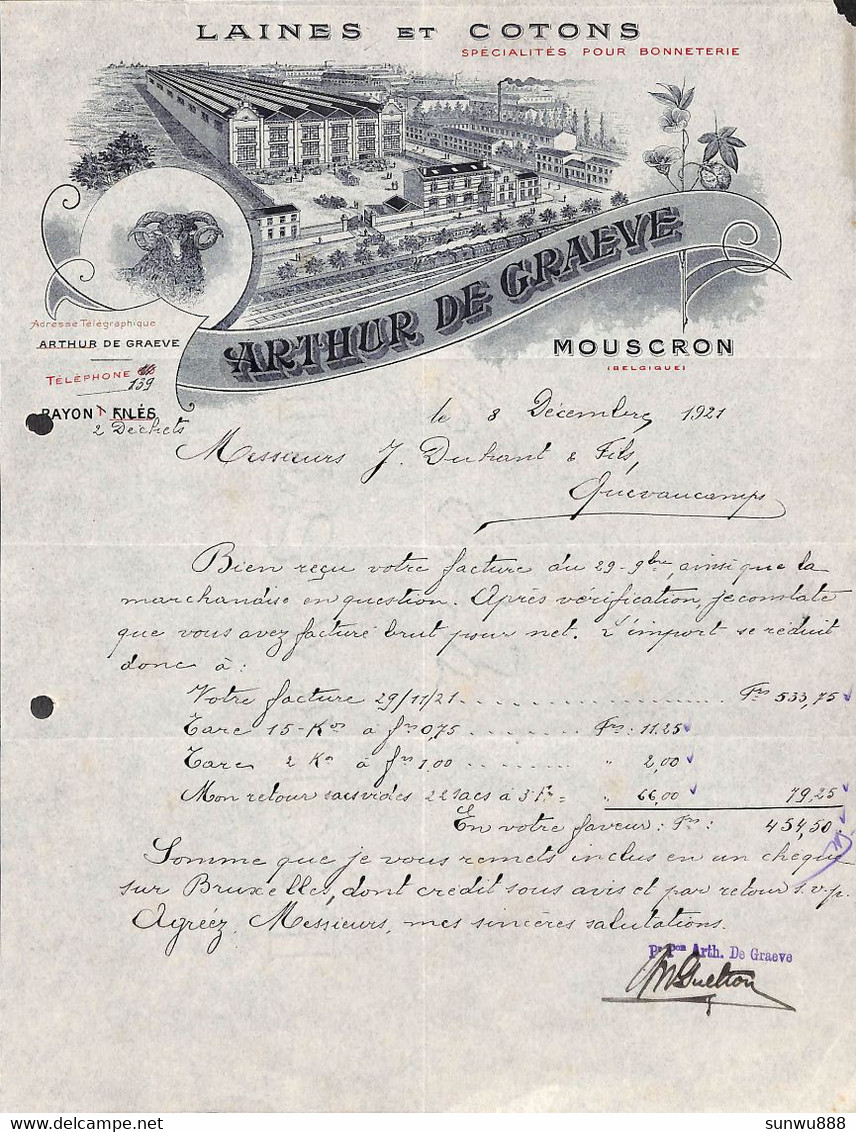 LAINES ET COTONS
SPÉCIALITÉS POUR BONNETERIE
ARTHUR DE GRAEVE
MOUSCRON
(BELGIQUE)
Adresse Télégraphique
ARTHUR DE GRAEVE
TÉLÉPHONE
139
RAYON FILÉS
2 Déchets
le 8 Décembre 1921
Messieurs J. Duhant & Fils,
Quevaucamps
Bien reçu votre facture du 29-9bre, ainsi que la
marchandise en question. Après vérification, je constate
que vous avez facturé brut pour net. L'import se réduit
donc à :
Votre facture 29/11/21 Frs 533,75
Tare 15 - Kos à frs 0,75 Frs : 11.25
Tare 2 Ko à frs 1.00 " 2,00
Mon retour sacs vides 22 sacs à 3 Fr = " 66,00 79,25
En votre faveur : Frs : 454,50
Somme que je vous remets inclus en un chèque
sur Bruxelles, dont crédit sous avis et par retour s.v.p.
Agréez, Messieurs, mes sincères salutations.
Pr Pon Arth. De Graeve
sunwu888